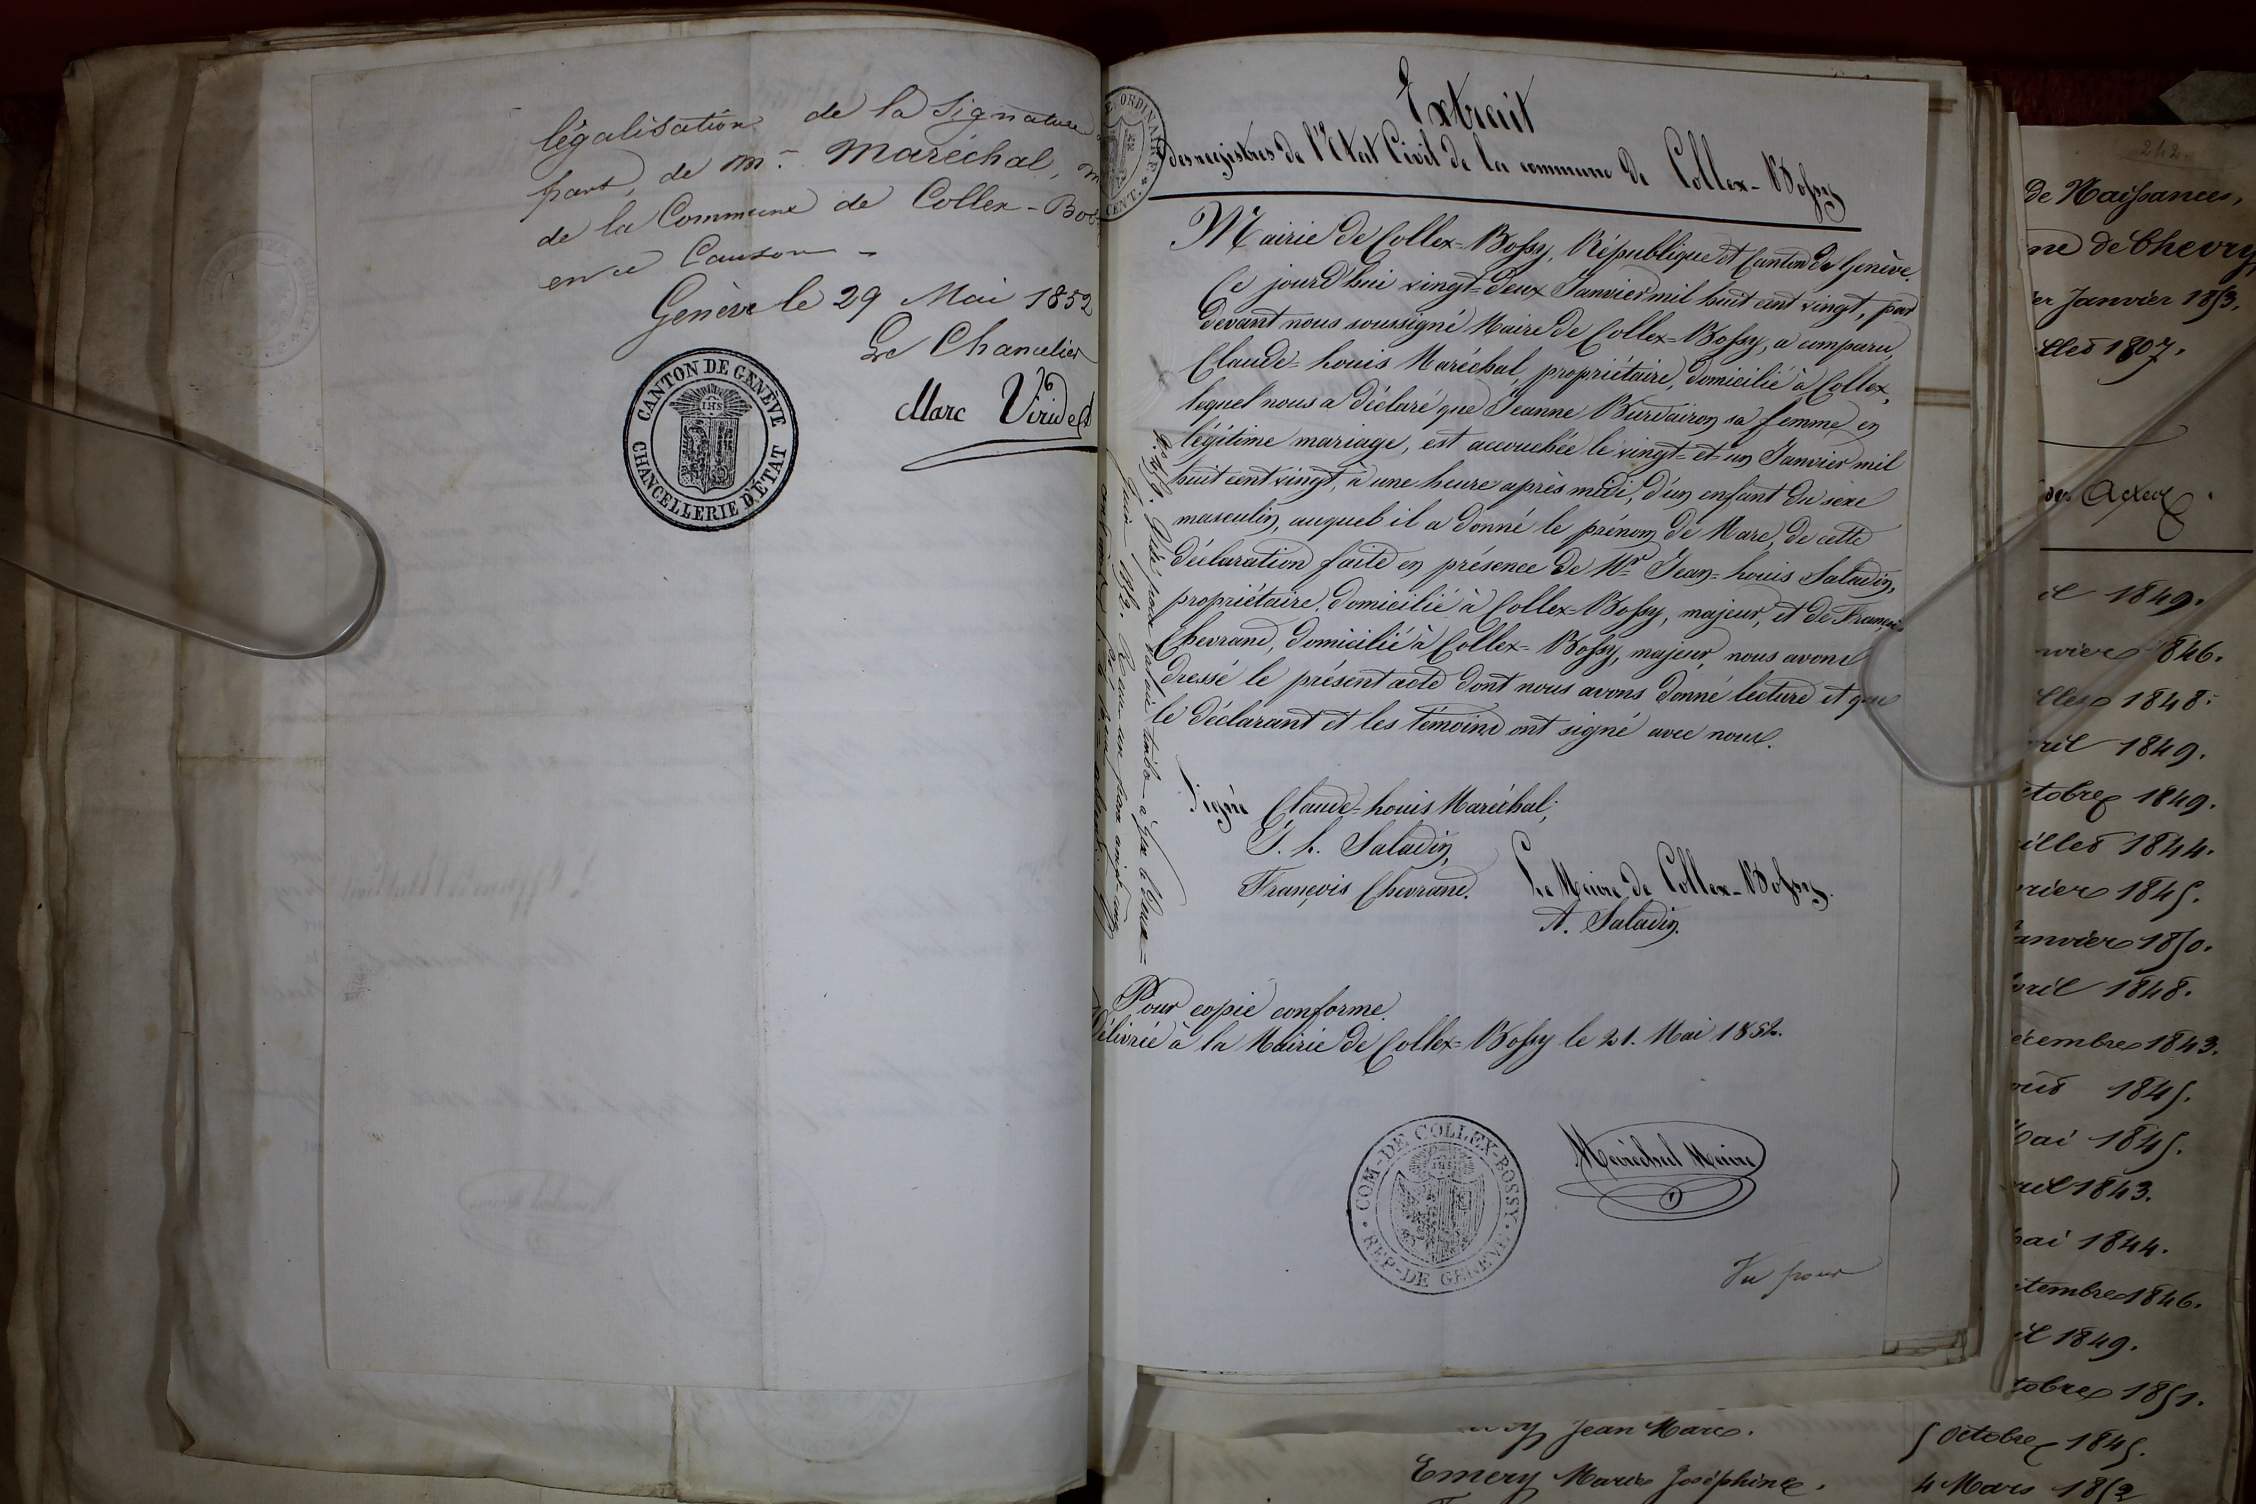 légalisation de la signature
part, de Mr. Maréchal, m
de la Commune de Collex-Bos
en ce Canton -
Genève le 29 Mai 1852
Le Chancelier
Marc Viridet
CANTON DE GENÈVE
IHS
CHANCELLERIE D'ÉTAT
ORDINAIRE
CENT.
Extrait
des registres de l'Etat Civil de la commune de Collex-Bossy
Mairie de Collex=Bossy, République et Canton de Genève.
Ce jourd'hui vingt=deux Janvier mil huit cent vingt, par
devant nous soussigné Maire de Collex=Bossy, a comparu,
Claude=Louis Maréchal, propriétaire, domicilié à Collex,
lequel nous a déclaré que Jeanne Burdairon sa femme en
légitime mariage, est accouchée le vingt=et=un Janvier mil
huit cent vingt, à une heure après midi, d'un enfant du sexe
masculin, auquel il a donné le prénom de Marc, de cette
déclaration faite en présence de Mr Jean=Louis Saladin,
propriétaire, domicilié à Collex=Bossy, majeur, et de François
Chevrand, domicilié à Collex=Bossy, majeur, nous avons
dressé le présent acte dont nous avons donné lecture et que
le déclarant et les témoins ont signé avec nous.
Signé Claude=Louis Maréchal,
J. L. Saladin,
François Chevrand.
Le Maire de Collex-Bossy.
A. Saladin.
Pour copie conforme
Délivrée à la Mairie de Collex=Bossy le 21. Mai 1852.
COM-DE COLLEX-BOSSY
REP-DE GENEVE
Maréchal Maire
Vu pour
visé pour timbre à Gex le
Juin 1852. Reçu
242
de Naissances,
ne de Chevry
er Janvier 1853.
lles 1807.
des Actes
il 1849.
nvier 1846.
lles 1848.
ril 1849.
ctobre 1849.
illes 1844.
vrier 1845.
anvier 1850.
vril 1848.
écembre 1843.
oût 1845.
Mai 1845.
ril 1843.
ai 1844.
ptembre 1846.
il 1849.
tobre 1851.
Jean Marc.
5 Octobre 1845.
Emery Marie Joséphine.
4 Mars 1852